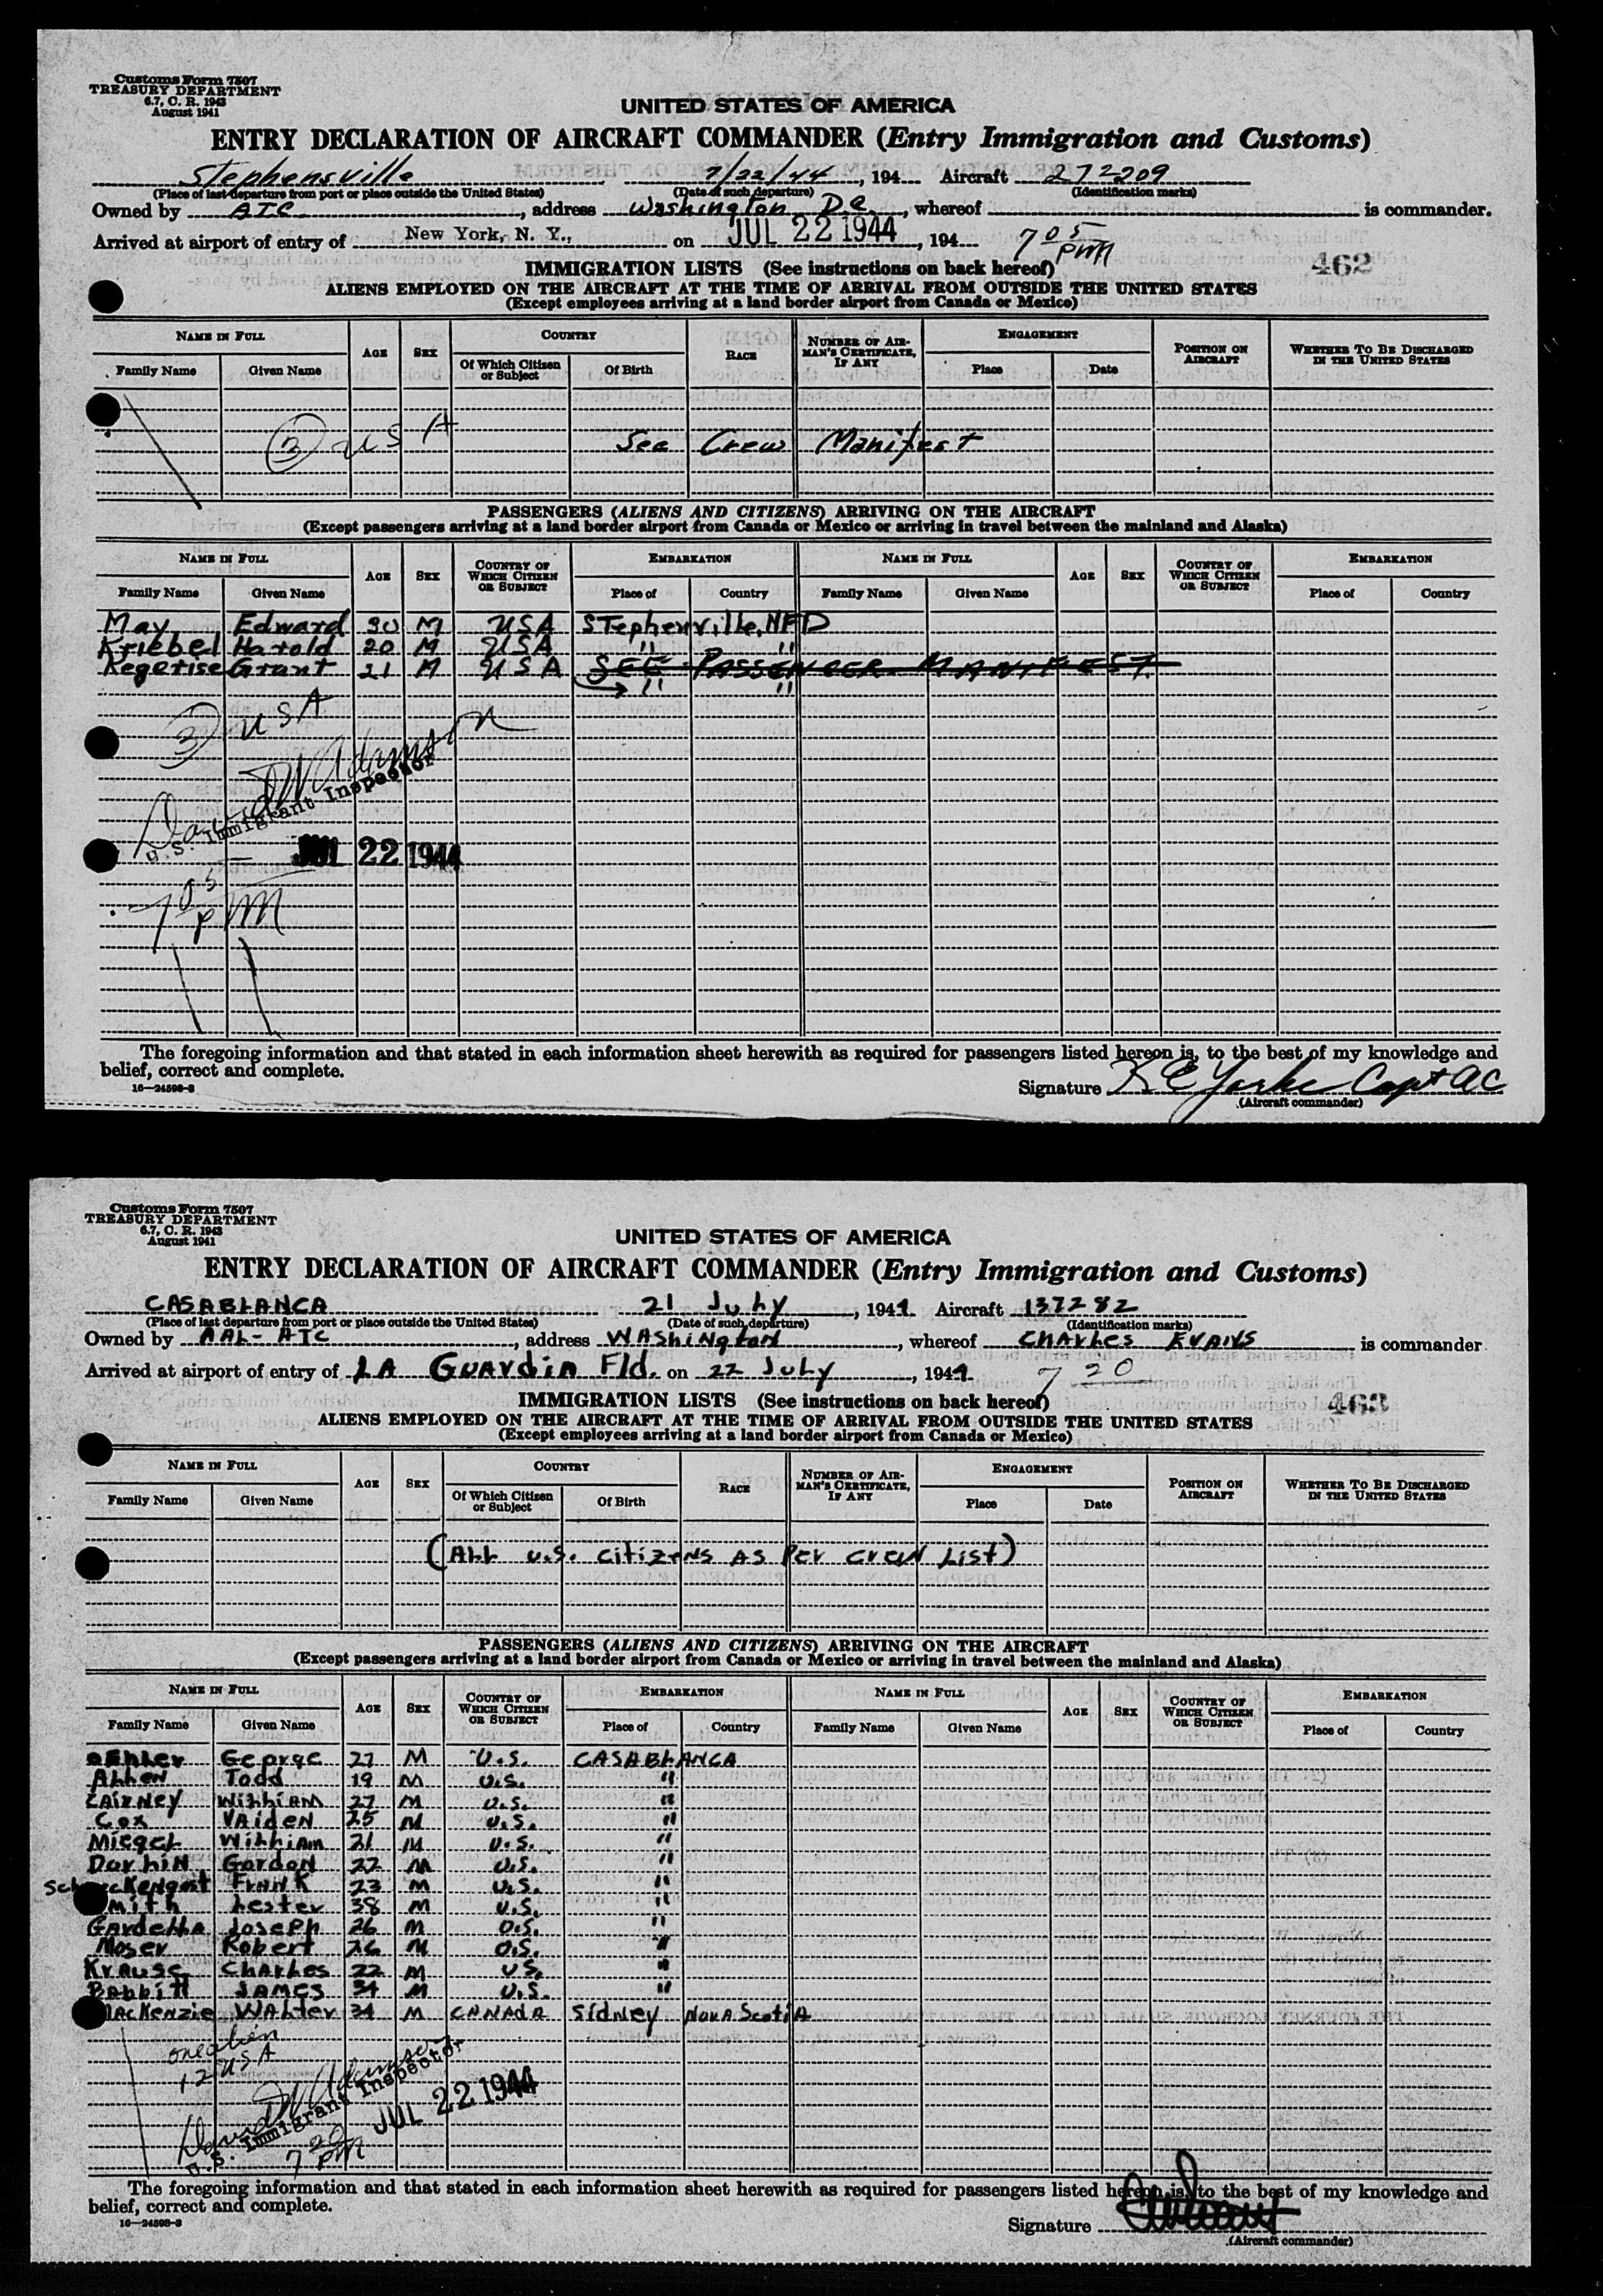 Customs Form 7507
TREASURY DEPARTMENT
6.7, C. R. 1943
August 1941
UNITED STATES OF AMERICA
ENTRY DECLARATION OF AIRCRAFT COMMANDER (Entry Immigration and Customs)
Stephensville 7/22/44, 194 Aircraft 272209
(Place of last departure from port or place outside the United States) (Date of such departure) (Identification marks)
Owned by ATC, address Washington D.C., whereof is commander.
Arrived at airport of entry of New York, N. Y., on JUL 22 1944, 194 7 05 PM
IMMIGRATION LISTS (See instructions on back hereof) 462
ALIENS EMPLOYED ON THE AIRCRAFT AT THE TIME OF ARRIVAL FROM OUTSIDE THE UNITED STATES
(Except employees arriving at a land border airport from Canada or Mexico)
NAME IN FULL AGE SEX COUNTRY RACE NUMBER OF AIRMAN'S CERTIFICATE, IF ANY ENGAGEMENT POSITION ON AIRCRAFT WHETHER TO BE DISCHARGED IN THE UNITED STATES
Family Name Given Name Of Which Citizen or Subject Of Birth Place Date
(3) USA See Crew Manifest
PASSENGERS (ALIENS AND CITIZENS) ARRIVING ON THE AIRCRAFT
(Except passengers arriving at a land border airport from Canada or Mexico or arriving in travel between the mainland and Alaska)
NAME IN FULL AGE SEX COUNTRY OF WHICH CITIZEN OR SUBJECT EMBARKATION NAME IN FULL AGE SEX COUNTRY OF WHICH CITIZEN OR SUBJECT EMBARKATION
Family Name Given Name Place of Country Family Name Given Name Place of Country
May Edward 30 M USA Stephenville, NFD
Kriebel Harold 20 M USA " "
Kegerise Grant 21 M USA SEE PASSENGER MANIFEST
" "
(3) USA
David W Adamson
U.S. Immigrant Inspector
JUL 22 1944
7 05 PM
The foregoing information and that stated in each information sheet herewith as required for passengers listed hereon is, to the best of my knowledge and
belief, correct and complete.
16—24598-3
Signature K E Yorke Capt AC
(Aircraft commander)
Customs Form 7507
TREASURY DEPARTMENT
6.7, C. R. 1943
August 1941
UNITED STATES OF AMERICA
ENTRY DECLARATION OF AIRCRAFT COMMANDER (Entry Immigration and Customs)
CASABLANCA 21 July, 1944 Aircraft 137282
(Place of last departure from port or place outside the United States) (Date of such departure) (Identification marks)
Owned by AAL-ATC, address WAShiNgtoN, whereof CHArLes EVANS is commander
Arrived at airport of entry of LA GUArdiA Fld. on 22 July, 1944 7 20
IMMIGRATION LISTS (See instructions on back hereof) 463
ALIENS EMPLOYED ON THE AIRCRAFT AT THE TIME OF ARRIVAL FROM OUTSIDE THE UNITED STATES
(Except employees arriving at a land border airport from Canada or Mexico)
NAME IN FULL AGE SEX COUNTRY RACE NUMBER OF AIRMAN'S CERTIFICATE, IF ANY ENGAGEMENT POSITION ON AIRCRAFT WHETHER TO BE DISCHARGED IN THE UNITED STATES
Family Name Given Name Of Which Citizen or Subject Of Birth Place Date
(ALL U.S. CitizeNS AS Per CreW List)
PASSENGERS (ALIENS AND CITIZENS) ARRIVING ON THE AIRCRAFT
(Except passengers arriving at a land border airport from Canada or Mexico or arriving in travel between the mainland and Alaska)
NAME IN FULL AGE SEX COUNTRY OF WHICH CITIZEN OR SUBJECT EMBARKATION NAME IN FULL AGE SEX COUNTRY OF WHICH CITIZEN OR SUBJECT EMBARKATION
Family Name Given Name Place of Country Family Name Given Name Place of Country
George 27 M U.S. CASABLANCA
ALLeN Todd 19 M U.S. "
CAirNey WiLLiAM 27 M U.S. "
Cox VAideN 25 M U.S. "
MiegeL WiLLiAm 21 M U.S. "
DurLiN GordoN 22 M U.S. "
FrANK 23 M U.S. "
Smith Lester 38 M U.S. "
GArdeLLA Joseph 26 M U.S. "
Moser Robert 26 M U.S. "
KrAuse ChArLes 22 M U.S. "
BAbbitt JAMes 34 M U.S. "
MacKenzie WALter 34 M CANADA Sidney NovA ScotiA
one alien
12 USA
David W Adamson
U.S. Immigrant Inspector
JUL 22 1944
7 20 PM
The foregoing information and that stated in each information sheet herewith as required for passengers listed hereon is, to the best of my knowledge and
belief, correct and complete.
16—24598-3
Signature
(Aircraft commander)